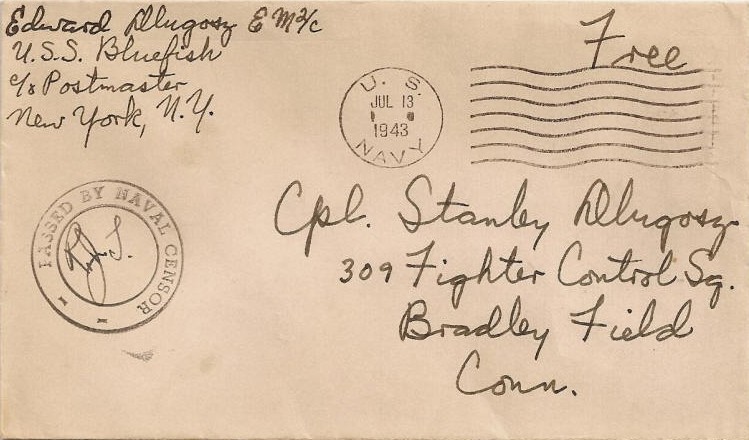 Edward Dlugosz EM2/c
U.S.S. Bluefish
c/o Postmaster
New York, N.Y.
Free
U. S.
JUL 13
1943
NAVY
PASSED BY NAVAL CENSOR
Cpl. Stanley Dlugosz
309 Fighter Control Sq.
Bradley Field
Conn.